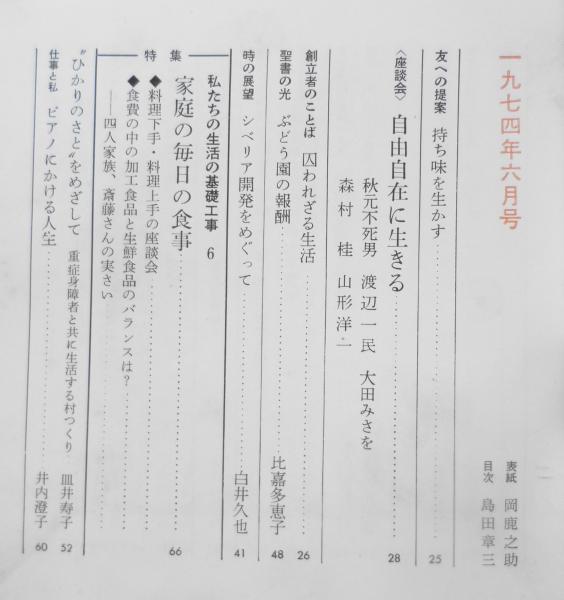 一九七四年六月号
表紙 岡鹿之助
目次 島田章三
友への提案 持ち味を生かす 25
〈座談会〉 自由自在に生きる 28
秋元不死男 渡辺一民 大田みさを
森村桂 山形洋一
創立者のことば 囚われざる生活 26
聖書の光 ぶどう園の報酬 比嘉多恵子 48
時の展望 シベリア開発をめぐって 白井久也 41
私たちの生活の基礎工事 6
特集
家庭の毎日の食事 66
◆料理下手・料理上手の座談会
◆食費の中の加工食品と生鮮食品のバランスは?
――四人家族、斎藤さんの実さい
“ひかりのさと”をめざして 重症身障者と共に生活する村つくり 皿井寿子 52
仕事と私 ピアノにかける人生 井内澄子 60